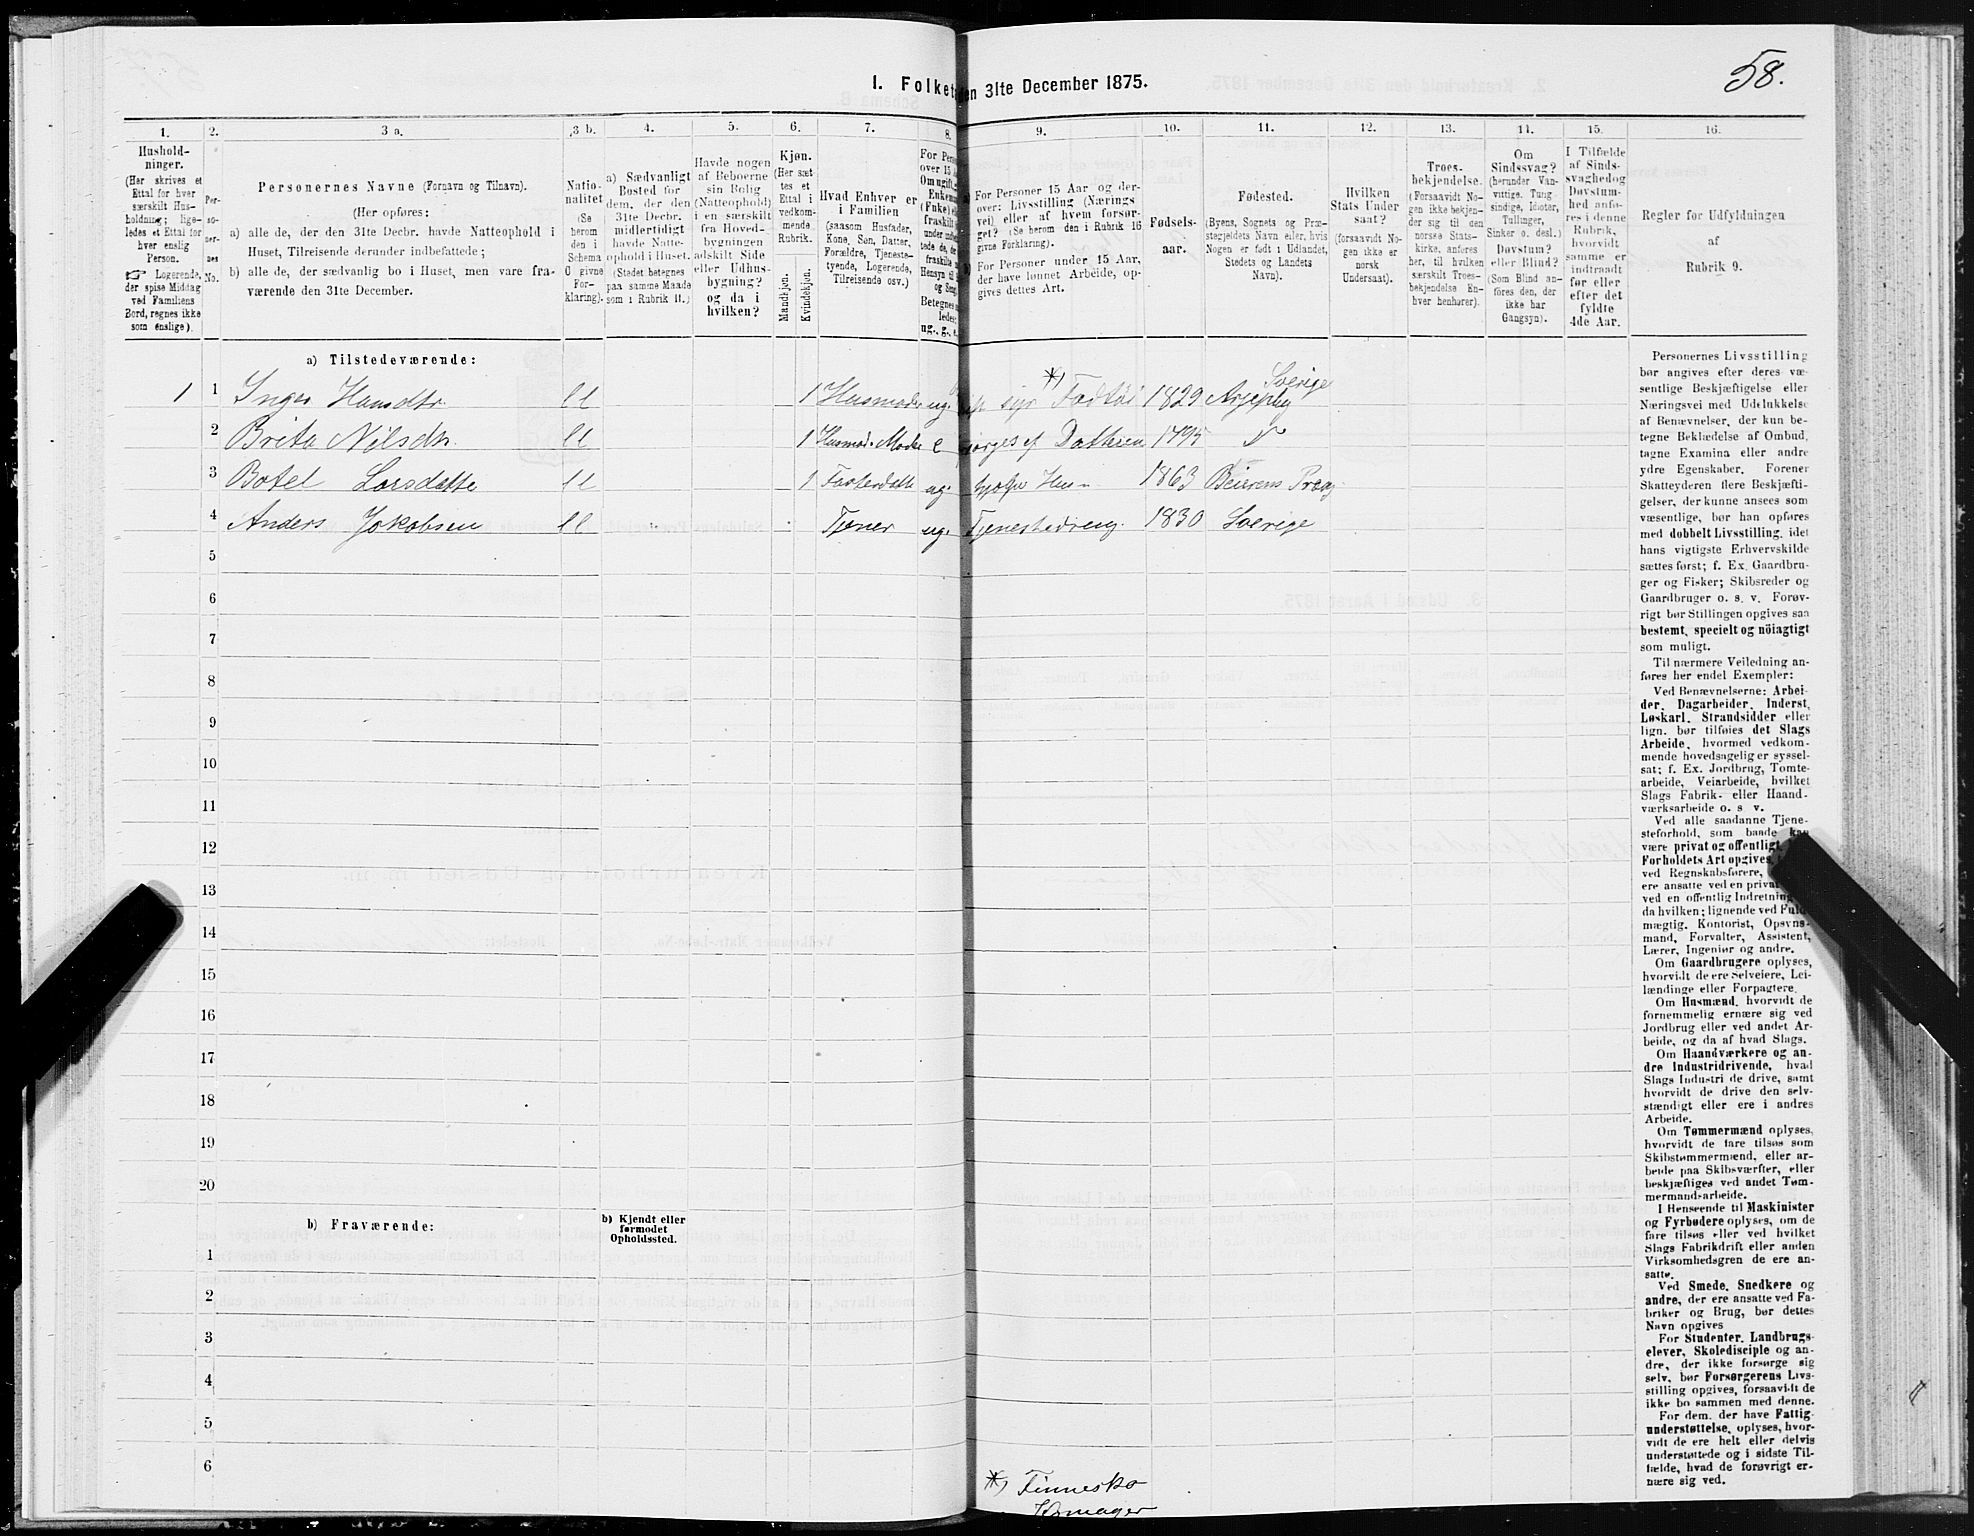 58.
1. Folket den 31te December 1875.
1. 2. 3 a. 3 b. 4. 5. 6. 7. 8. 9. 10. 11. 12. 13. 14. 15. 16.
Hushold-
ninger.
(Her skrives et
Ettal for hver
særskilt Hus-
holdning; lige-
ledes et Ettal for
hver enslig
Person.
☞ Logerende,
der spise Middag
ved Familiens
Bord, regnes ikke
som enslige).
Per-
so-
ner-
nes
No.
Personernes Navne (Fornavn og Tilnavn).
(Her opføres:
a) alle de, der den 31te Decbr. havde Natteophold i
Huset, Tilreisende derunder indbefattede;
b) alle de, der sædvanlig bo i Huset, men vare fra-
værende den 31te December.
Natio-
nalitet
(Se
herom
den i
Schema
O givne
For-
klaring).
a) Sædvanligt
Bosted for
dem, der den
31te Decbr.
midlertidigt
havde Natte-
ophold i Huset.
(Stedet betegnes
paa samme Maade
som i Rubrik 11.)
Havde nogen
af Beboerne
sin Bolig
(Natteophold)
i en særskilt
fra Hoved-
bygningen
adskilt Side
eller Udhus-
bygning?
og da i
hvilken?
Kjøn.
(Her sæt
tes et
Ettal i
vedkom-
mende
Rubrik.
Mandkjøn.
Kvindekjøn.
Hvad Enhver er
i Familien
(saasom Husfader,
Kone, Søn, Datter,
Forældre, Tjeneste-
tyende, Logerende,
Tilreisende osv.)
For Pers
over 15 A
Om ugift, g
Enkema
(Enke) el
fraskilt
Hensyn til
og Seng.
Betegnes
ledes:
ug., g., e.
For Personer 15 Aar og der-
over: Livsstilling (Nærings
vei) eller af hvem forsør-
get? (Se herom den i Rubrik 16
givne Forklaring).
For Personer under 15 Aar,
der have lønnet Arbeide, op-
gives dettes Art.
Fødsels-
aar.
Fødested.
(Byens, Sognets og Præ-
stegjeldets Navn eller, hvis
Nogen er født i Udlandet,
Stedets og Landets
Navn).
Hvilken
Stats Under
saat?
(forsaavidt No-
gen ikke er
norsk
Undersaat).
Troes-
bekjendelse.
(Forsaavidt No-
gen ikke bekjen-
der sig til den
norske Stats-
kirke, anføres
her, til hvilken
særskilt Troes-
bekjendelse En-
hver henhører).
Om
Sindssvag?
(herunder Van-
vittige, Tung
sindige, Idioter,
Tullinger,
Sinker o. desl.)
Døvstum?
eller Blind?
(Som Blind an-
føres den, der
ikke har
Gangsyn).
I Tilfælde
af Sinds-
svaghed og
Døvstum-
hed anfø-
res i denne
Rubrik,
hvorvidt
samme er
indtraadt
før eller
efter det
fyldte
4de Aar.
Regler for Udfyldningen
af
Rubrik 9.
a) Tilstedeværende:
1 1 Inger Hansdtr. ll 1 Husmoder ug. syr *) Fodtøi 1829 Arjeplog Sverige
2 Brita Nilsdtr. ll 1 Husmod. Moder e forsørges af Datteren 1795 "
3 Botel Larsdatte ll 1 Fosterdatt ug. 1863 Beierens Præg.
4 Anders Jakobsen ll Tjener ug. Tjenestedreng 1830 Sverige
5
6
7
8
9
10
11
12
13
14
15
16
17
18
19
20
b) Fraværende:
b) Kjendt eller
formodet
Opholdssted.
1
2
3
4
5
6
*) Finnesko
Komager
Personernes Livsstilling
bør angives efter deres væ-
sentlige Beskjæftigelse eller
Næringsvei med Udelukkelse
af Benævnelser, der kun be-
tegne Beklædelse af Ombud,
tagne Examina eller andre
ydre Egenskaber. Forener
Skatteyderen flere Beskjæfti-
gelser, der kunne ansees som
væsentlige, bør han opføres
med dobbelt Livsstilling, idet
hans vigtigste Erhvervskilde
sættes først; f. Ex. Gaardbru-
ger og Fisker; Skibsreder og
Gaardbruger o. s. v. Forøv-
rigt bør Stillingen opgives saa
bestemt, specielt og nöiagtigt
som muligt.
Til nærmere Veiledning an-
føres her endel Exempler:
Ved Benævnelserne: Arbei-
der, Dagarbeider, Inderst,
Løskarl, Strandsidder eller
lign. bør tilføies det Slags
Arbeide, hvormed vedkom-
mende hovedsagelig er syssel-
sat; f. Ex. Jordbrug, Tomte-
arbeide, Veiarbeide, hvilket
Slags Fabrik- eller Haand-
værksarbeide o. s. v.
Ved alle saadanne Tjene-
steforhold, som baade kan
være privat og offentligt,
Forholdets Art opgives,
ved Regnskabsførere,
ere ansatte ved en privat
ved en offentlig Indretning
da hvilken; lignende ved Fuld-
mægtig, Kontorist, Opsyns-
mand, Forvalter, Assistent,
Lærer, Ingeniør og andre.
Om Gaardbrugere oplyses,
hvorvidt de ere Selveiere, Lei-
lændinge eller Forpagtere.
Om Husmænd, hvorvidt de
fornemmelig ernære sig ved
Jordbrug eller ved andet Ar-
beide, og da af hvad Slags.
Om Haandværkere og an-
dre Industridrivende, hvad
Slags Industri de drive, samt
hvorvidt de drive den selv-
stændigt eller ere i andres
Arbeide.
Om Tømmermænd oplyses,
hvorvidt de fare tilsøs som
Skibstømmermænd, eller ar-
beide paa Skibsværfter, eller
beskjæftiges ved andet Tøm-
mermandsarbeide.
I Henseende til Maskinister
og Fyrbødere oplyses, om de
fare tilsøs eller ved hvilket
Slags Fabrikdrift eller anden
Virksomhedsgren de ere an-
satte.
Ved Smede, Snedkere og
andre, der ere ansatte ved Fa-
briker og Brug, bør dettes
Navn opgives
For Studenter, Landbrugs-
elever, Skoledisciple og an-
dre, der ikke forsørge sig
selv, bør Forsørgerens Livs-
stilling opgives, forsaavidt de
ikke bo sammen med denne.
For dem, der have Fattig-
understøttelse, oplyses, hvor-
vidt de ere helt eller delvis
understøttede og i sidste Til-
fælde, hvad de forøvrigt er-
nære sig ved.